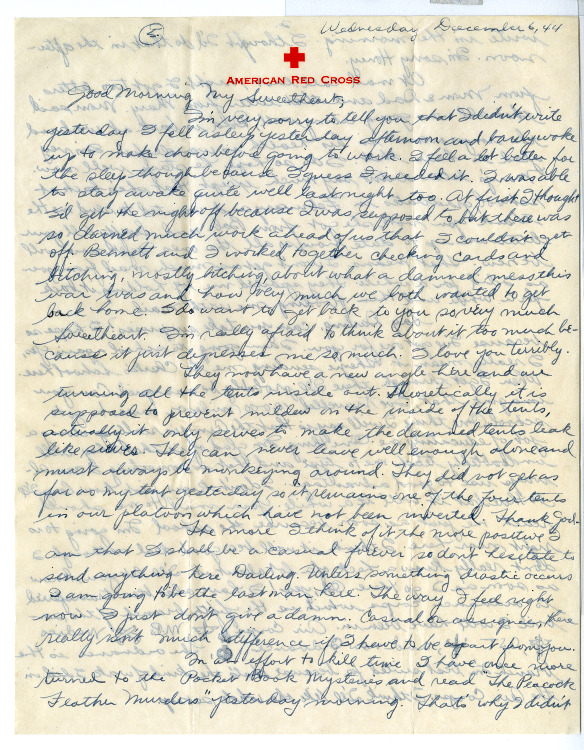 Wednesday, December 6, 44
AMERICAN RED CROSS
Good Morning My Sweetheart;
I'm very sorry to tell you that I didn't write
yesterday. I fell asleep yesterday afternoon and barely woke
up to make chow before going to work. I feel a lot better for
the sleep though because I guess I needed it. I was able
to stay awake quite well last night too. At first I thought
I'd get the night off because I was supposed to but there was
so darned much work ahead of us that I couldn't get
off. Bennett and I worked together checking cards and
bitching, mostly bitching, about what a damned mess this
war was and how very much we both wanted to get
back home. I do want to get back to you so very much
Sweetheart. I'm really afraid to think about it too much be-
cause it just depresses me so much. I love you terribly.
They now have a new angle here and are
turning all the tents inside out. Theoretically it is
supposed to prevent mildew on the inside of the tents,
actually it only serves to make the damned tents leak
like sieves. They can never leave well enough alone and
must always be monkeying around. They did not get as
far as my tent yesterday so it remains one of the four tents
in our platoon which have not been inverted, Thank God.
The more I think of it the more positive I
am that I shall be a casual forever so don't hesitate to
send anything here Darling. Unless something drastic occurs
I am going to be the last man here. The way I feel right
now I just don't give a damn. Casual or assignee, there
really isn't much difference if I have to be apart from you.
In an effort to kill time I have once more
turned to the Pocket Book Mysteries and read "The Peacock
Feather Murders" yesterday morning. That's why I didn't